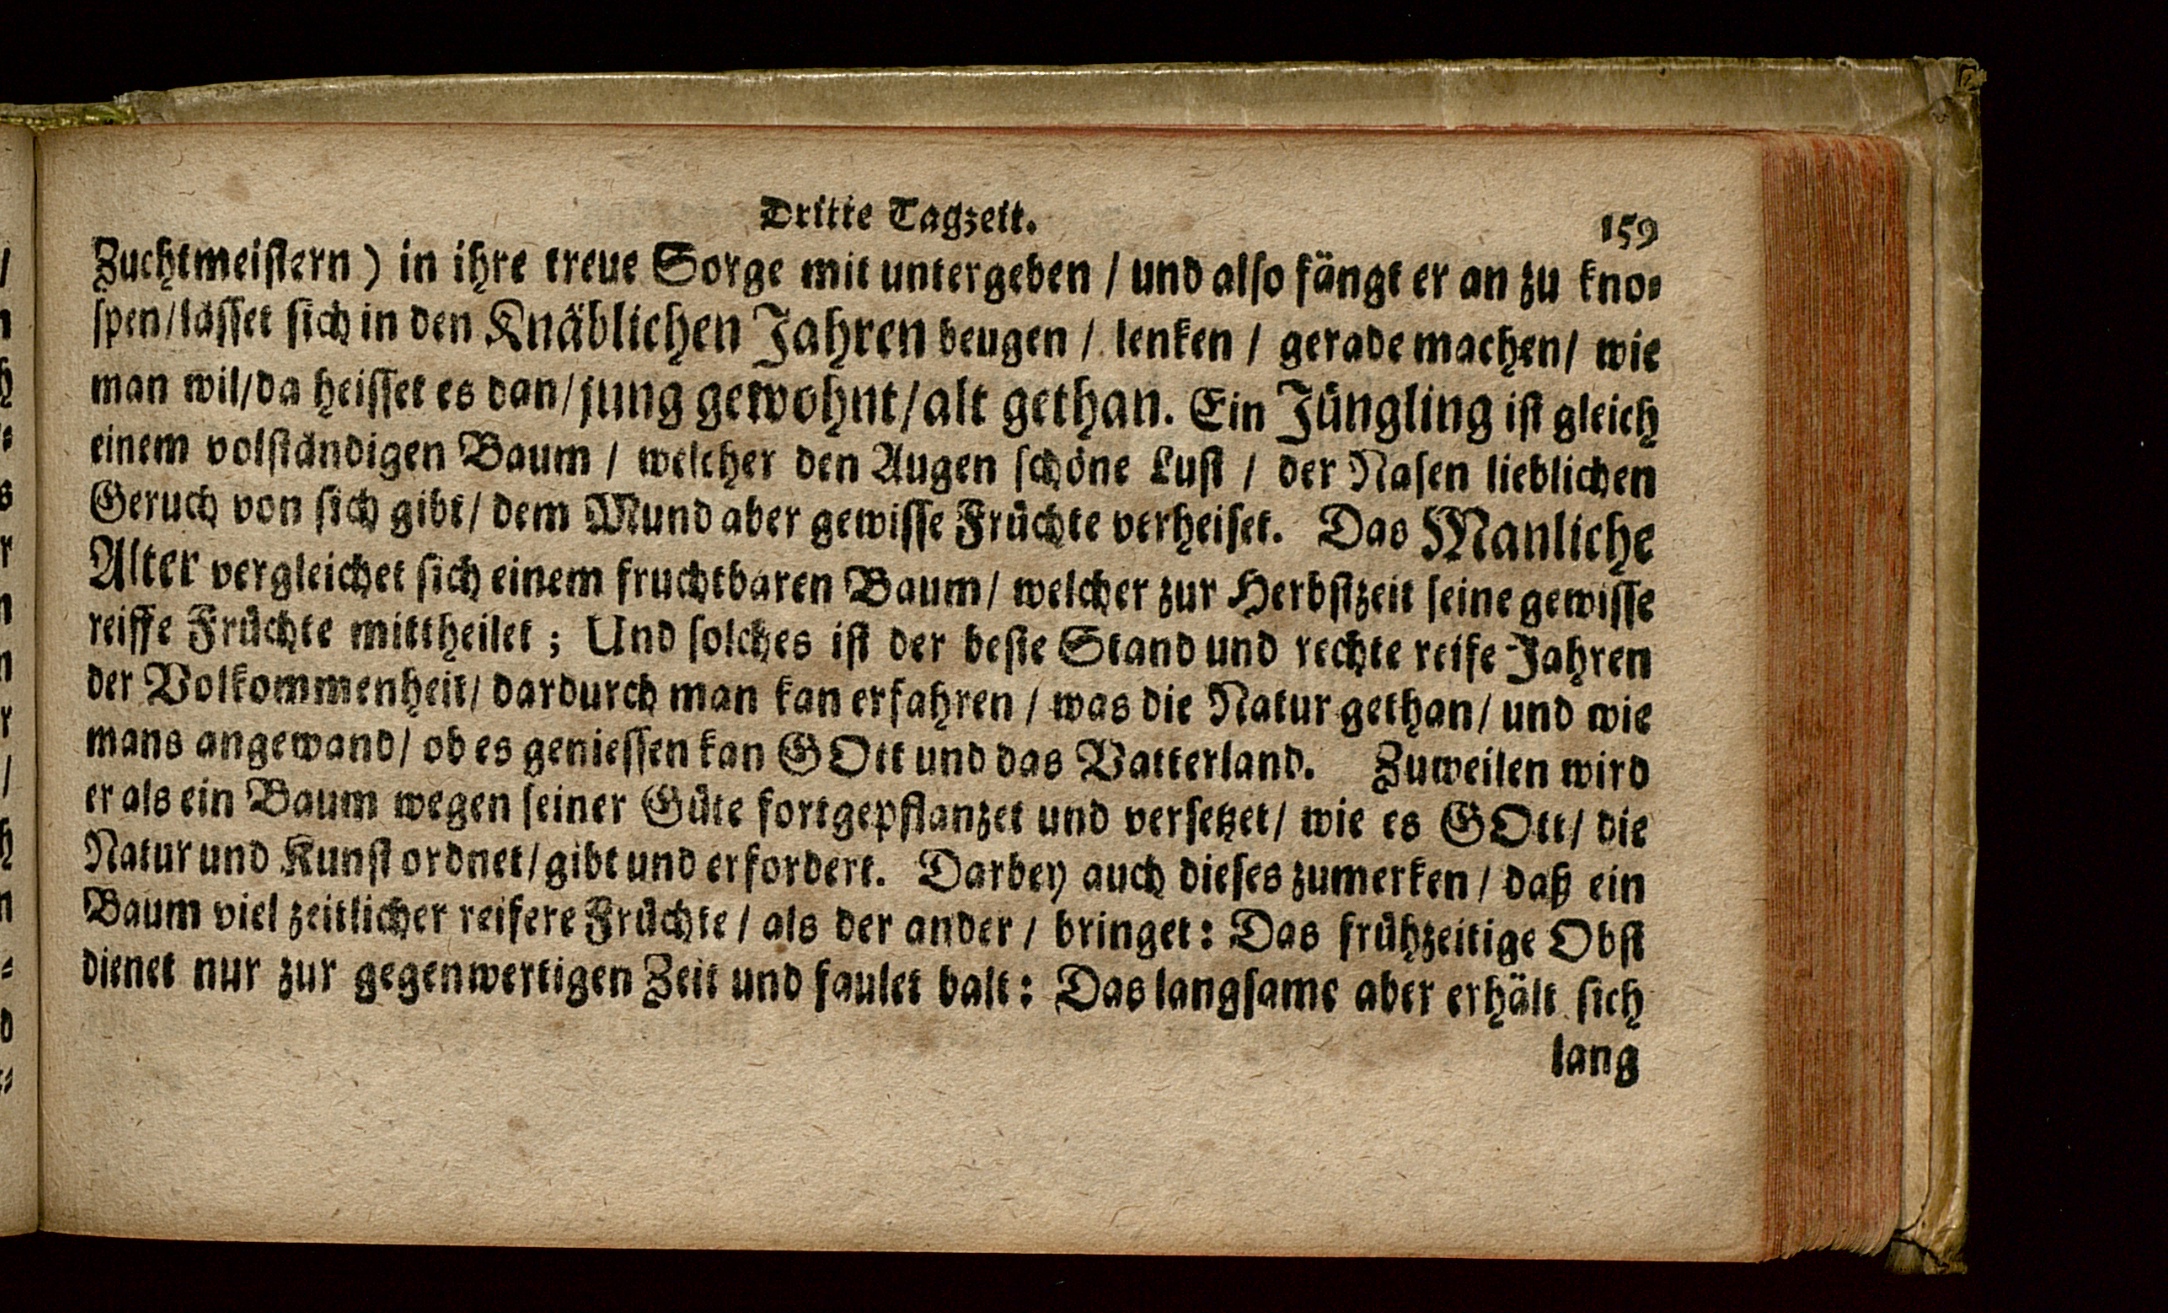 Dritte Tagzeit.
159
Zuchtmeiſtern) in ihre treue Sorge mit untergeben / und alſo fängt er an zu kno⸗
ſpen/läſſet ſich in den Knäblichen Jahren beugen / lenken / gerade machen/ wie
man wil/da heiſſet es dan/jung gewohnt/alt gethan. Ein Jüngling iſt gleich
einem volſtändigen Baum / welcher den Augen ſchöne Luſt / der Naſen lieblichen
Geruch von ſich gibt/ dem Mund aber gewiſſe Früchte verheiſet. Das Manliche
Alter vergleichet ſich einem fruchtbaren Baum/ welcher zur Herbſtzeit ſeine gewiſſe
reiffe Früchte mittheilet; Und ſolches iſt der beſte Stand und rechte reife Jahren
der Volkommenheit/ dardurch man kan erfahren / was die Natur gethan/ und wie
mans angewand/ ob es genieſſen kan GOtt und das Vatterland. Zuweilen wird
er als ein Baum wegen ſeiner Güte fortgepflanzet und verſetzet/ wie es GOtt/ die
Natur und Kunſt ordnet/gibt und erfordert. Darbey auch dieſes zumerken / daß ein
Baum viel zeitlicher reifere Früchte / als der ander / bringet: Das frühzeitige Obſt
dienet nur zur gegenwertigen Zeit und faulet balt: Das langſame aber erhält ſich
lang